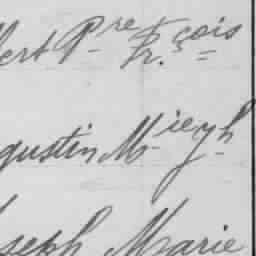 bert Pre Fr. çois
gustin M ieyh
seph Marie